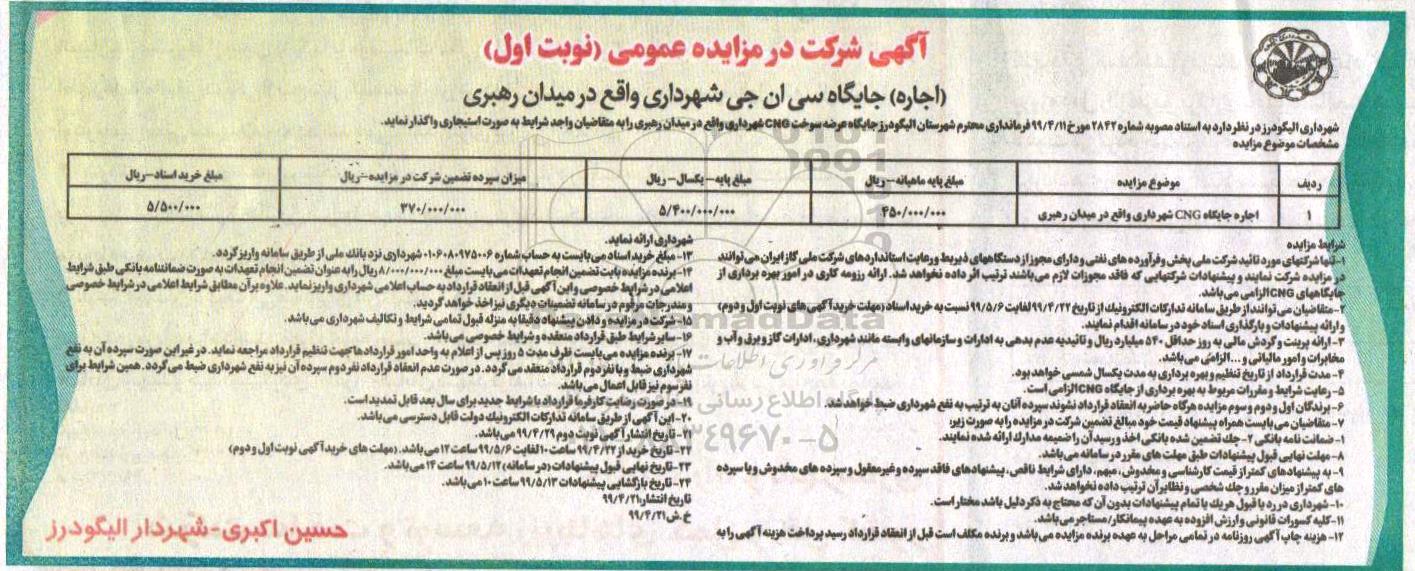 آگهی شرکت در مزایده عمومی (نوبت اول)
(اجاره) جایگاه سی ان جی شهرداری واقع در میدان رهبری
شهرداری الیگودرز در نظر دارد به استناد مصوبه شماره ۲۸۴۲ مورخ ۹۹/۴/۱۱ فرمانداری محترم شهرستان الیگودرز جایگاه عرضه سوخت CNG شهرداری واقع در میدان رهبری را به متقاضیان واجد شرایط به صورت استیجاری واگذار نماید.
مشخصات موضوع مزایده
ردیف موضوع مزایده مبلغ پایه ماهیانه-ریال مبلغ پایه-یکسال-ریال میزان سپرده تضمین شرکت در مزایده-ریال مبلغ خرید اسناد-ریال
۱ اجاره جایگاه CNG شهرداری واقع در میدان رهبری ۴۵۰/۰۰۰/۰۰۰ ۵/۴۰۰/۰۰۰/۰۰۰ ۳۷۰/۰۰۰/۰۰۰ ۵/۵۰۰/۰۰۰
شرایط مزایده
۱-تنها شرکتهای مورد تائید شرکت ملی پخش وفرآورده های نفتی و دارای مجوز از دستگاههای ذیربط ورعایت استانداردهای شرکت ملی گاز ایران می توانند
در مزایده شرکت نمایند و پیشنهادات شرکتهایی که فاقد مجوزات لازم می باشند ترتیب اثر داده نخواهد شد. ارائه رزومه کاری در امور بهره برداری از
جایگاههای CNG الزامی می باشد.
۲-متقاضیان می توانند از طریق سامانه تدارکات الکترونیک از تاریخ ۹۹/۴/۲۲ لغایت ۹۹/۵/۶ نسبت به خرید اسناد (مهلت خرید آگهی های نوبت اول و دوم)
و ارائه پیشنهادات و بارگذاری اسناد خود در سامانه اقدام نمایند.
۳-ارائه پرینت و گردش مالی به روز حداقل ۵۴۰ میلیارد ریال و تائیدیه عدم بدهی به ادارات و سازمانهای وابسته مانند شهرداری، ادارات گاز و برق و آب و
مخابرات و امور مالیاتی و... الزامی می باشد.
۴-مدت قرارداد از تاریخ تنظیم و بهره برداری به مدت یکسال شمسی خواهد بود.
۵-رعایت شرایط و مقررات مربوط به بهره برداری از جایگاه CNG الزامی است.
۶-برندگان اول و دوم و سوم مزایده هرگاه حاضر به انعقاد قرارداد نشوند سپرده آنان به ترتیب به نفع شهرداری ضبط خواهد شد.
۷-متقاضیان می بایست همراه پیشنهاد قیمت خود مبالغ تضمین شرکت در مزایده را به صورت زیر:
۱-ضمانت نامه بانکی ۲-چک تضمین شده بانکی اخذ و رسید آن را ضمیمه مدارک ارائه شده نمایند.
۸-مهلت نهایی قبول پیشنهادات طبق مهلت های مقرر در سامانه می باشد.
۹-به پیشنهادهای کمتر از قیمت کارشناسی و مخدوش، مبهم، دارای شرایط ناقص، پیشنهادهای فاقد سپرده وغیرمعقول و سپرده های مخدوش و یا سپرده
های کمتر از میزان مقرر و چک شخصی و نظایر آن ترتیب داده نخواهد شد.
۱۰-شهرداری در رد یا قبول هر یک یا تمام پیشنهادات بدون آن که محتاج به ذکر دلیل باشد مختار است.
۱۱-کلیه کسورات قانونی و ارزش افزوده به عهده پیمانکار/مستاجر می باشد.
۱۲-هزینه چاپ آگهی روزنامه در تمامی مراحل به عهده برنده مزایده می باشد و برنده مکلف است قبل از انعقاد قرارداد رسید پرداخت هزینه آگهی را به
شهرداری ارائه نماید.
۱۳-مبلغ خرید اسناد می بایست به حساب شماره ۰۱۰۶۰۸۰۹۷۵۰۰۶ شهرداری نزد بانک ملی از طریق سامانه واریز گردد.
۱۴-برنده مزایده بابت تضمین انجام تعهدات می بایست مبلغ ۸/۰۰۰/۰۰۰/۰۰۰ ریال را به عنوان تضمین انجام تعهدات به صورت ضمانتنامه بانکی طبق شرایط
اعلامی در شرایط خصوصی و این آگهی قبل از انعقاد قرارداد به حساب اعلامی شهرداری واریز نماید. علاوه بر آن مطابق شرایط اعلامی در شرایط خصوصی
و مندرجات مرقوم در سامانه تضمینات دیگری نیز اخذ خواهد گردید.
۱۵-شرکت در مزایده و دادن پیشنهاد دقیقا به منزله قبول تمامی شرایط و تکالیف شهرداری می باشد.
۱۶-سایر شرایط طبق قرارداد منعقده و شرایط خصوصی می باشد.
۱۷-برنده مزایده می بایست ظرف مدت ۵ روز پس از اعلام به واحد امور قراردادها جهت تنظیم قرارداد مراجعه نماید. در غیر این صورت سپرده آن به نفع
شهرداری ضبط و با نفر دوم قرارداد منعقد می گردد. در صورت عدم انعقاد قرارداد نفر دوم سپرده آن نیز به نفع شهرداری ضبط می گردد. همین شرایط برای
نفر سوم نیز قابل اعمال می باشد.
۱۹-در صورت رضایت کارفرما قرارداد با شرایط جدید برای سال بعد قابل تمدید است.
۲۰-این آگهی از طریق سامانه تدارکات الکترونیک دولت قابل دسترسی می باشد.
۲۱-تاریخ انتشار آگهی نوبت دوم ۹۹/۴/۲۹ می باشد.
۲۲-تاریخ خرید از ۹۹/۴/۲۲ ساعت ۱۰ لغایت ۹۹/۵/۶ ساعت ۱۲ می باشد. (مهلت های خرید آگهی نوبت اول و دوم)
۲۳-تاریخ نهایی قبول پیشنهادات (در سامانه) ۹۹/۵/۱۲ ساعت ۱۴ می باشد.
۲۴-تاریخ بازگشایی پیشنهادات ۹۹/۵/۱۳ ساعت ۱۰ می باشد.
تاریخ انتشار: ۹۹/۴/۲۱
خ.ش ۹۹/۴/۲۱
حسین اکبری-شهردار الیگودرز